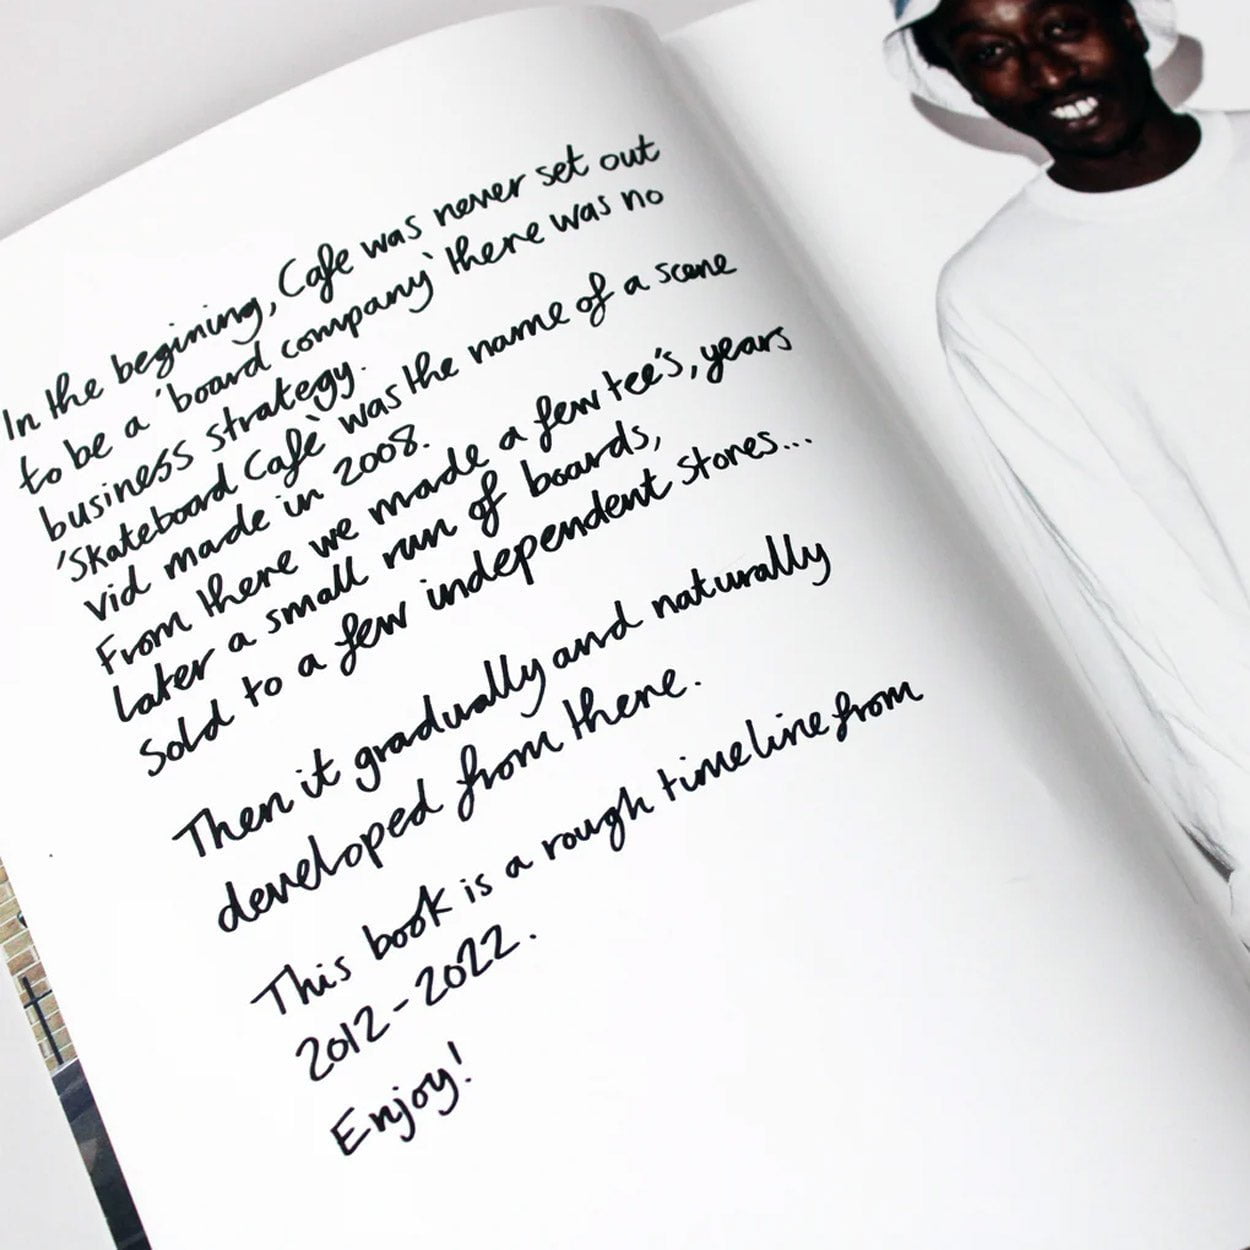 In the begining, Cafe was never set out
to be a 'board company' there was no
business strategy.
'Skateboard Cafe' was the name of a scene
vid made in 2008.
From there we made a few tee's, years
later a small run of boards,
sold to a few independent stores...
Then it gradually and naturally
developed from there.
This book is a rough timeline from
2012-2022.
Enjoy!